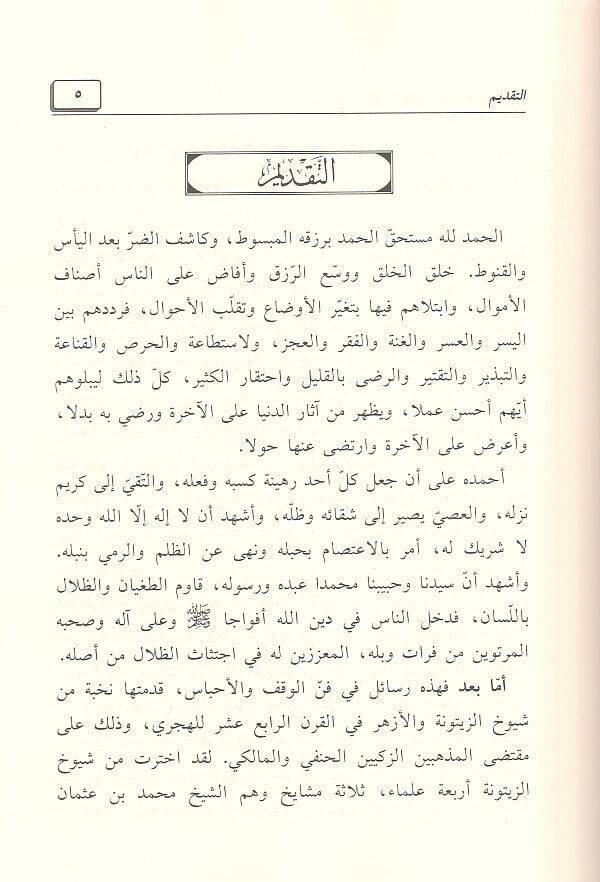 التقديم
٥
التَّقْدِيم
الحمد لله مستحقّ الحمد برزقه المبسوط، وكاشف الضرّ بعد اليأس
والقنوط. خلق الخلق ووسّع الرّزق وأفاض على الناس أصناف
الأموال، وابتلاهم فيها بتغيّر الأوضاع وتقلّب الأحوال، فرددهم بين
اليسر والعسر والغنة والفقر والعجز، ولاستطاعة والحرص والقناعة
والتبذير والتقتير والرضى بالقليل واحتقار الكثير، كلّ ذلك ليبلوهم
أيّهم أحسن عملا، ويظهر من آثار الدنيا على الآخرة ورضي به بدلا،
وأعرض على الآخرة وارتضى عنها حولا.
أحمده على أن جعل كلّ أحد رهينة كسبه وفعله، والتّقيّ إلى كريم
نزله، والعصيّ يصير إلى شقائه وظلّه، وأشهد أن لا إله إلّا الله وحده
لا شريك له، أمر بالاعتصام بحبله ونهى عن الظلم والرمي بنبله.
وأشهد أنّ سيدنا وحبيبنا محمدا عبده ورسوله، قاوم الطغيان والظلال
باللّسان، فدخل الناس في دين الله أفواجا ﷺ وعلى آله وصحبه
المرتوين من فرات وبله، المعززين له في اجتثاث الظلال من أصله.
أمّا بعد فهذه رسائل في فنّ الوقف والأحباس، قدمتها نخبة من
شيوخ الزيتونة والأزهر في القرن الرابع عشر للهجري، وذلك على
مقتضى المذهبين الزكيين الحنفي والمالكي. لقد اخترت من شيوخ
الزيتونة أربعة علماء، ثلاثة مشايخ وهم الشيخ محمد بن عثمان